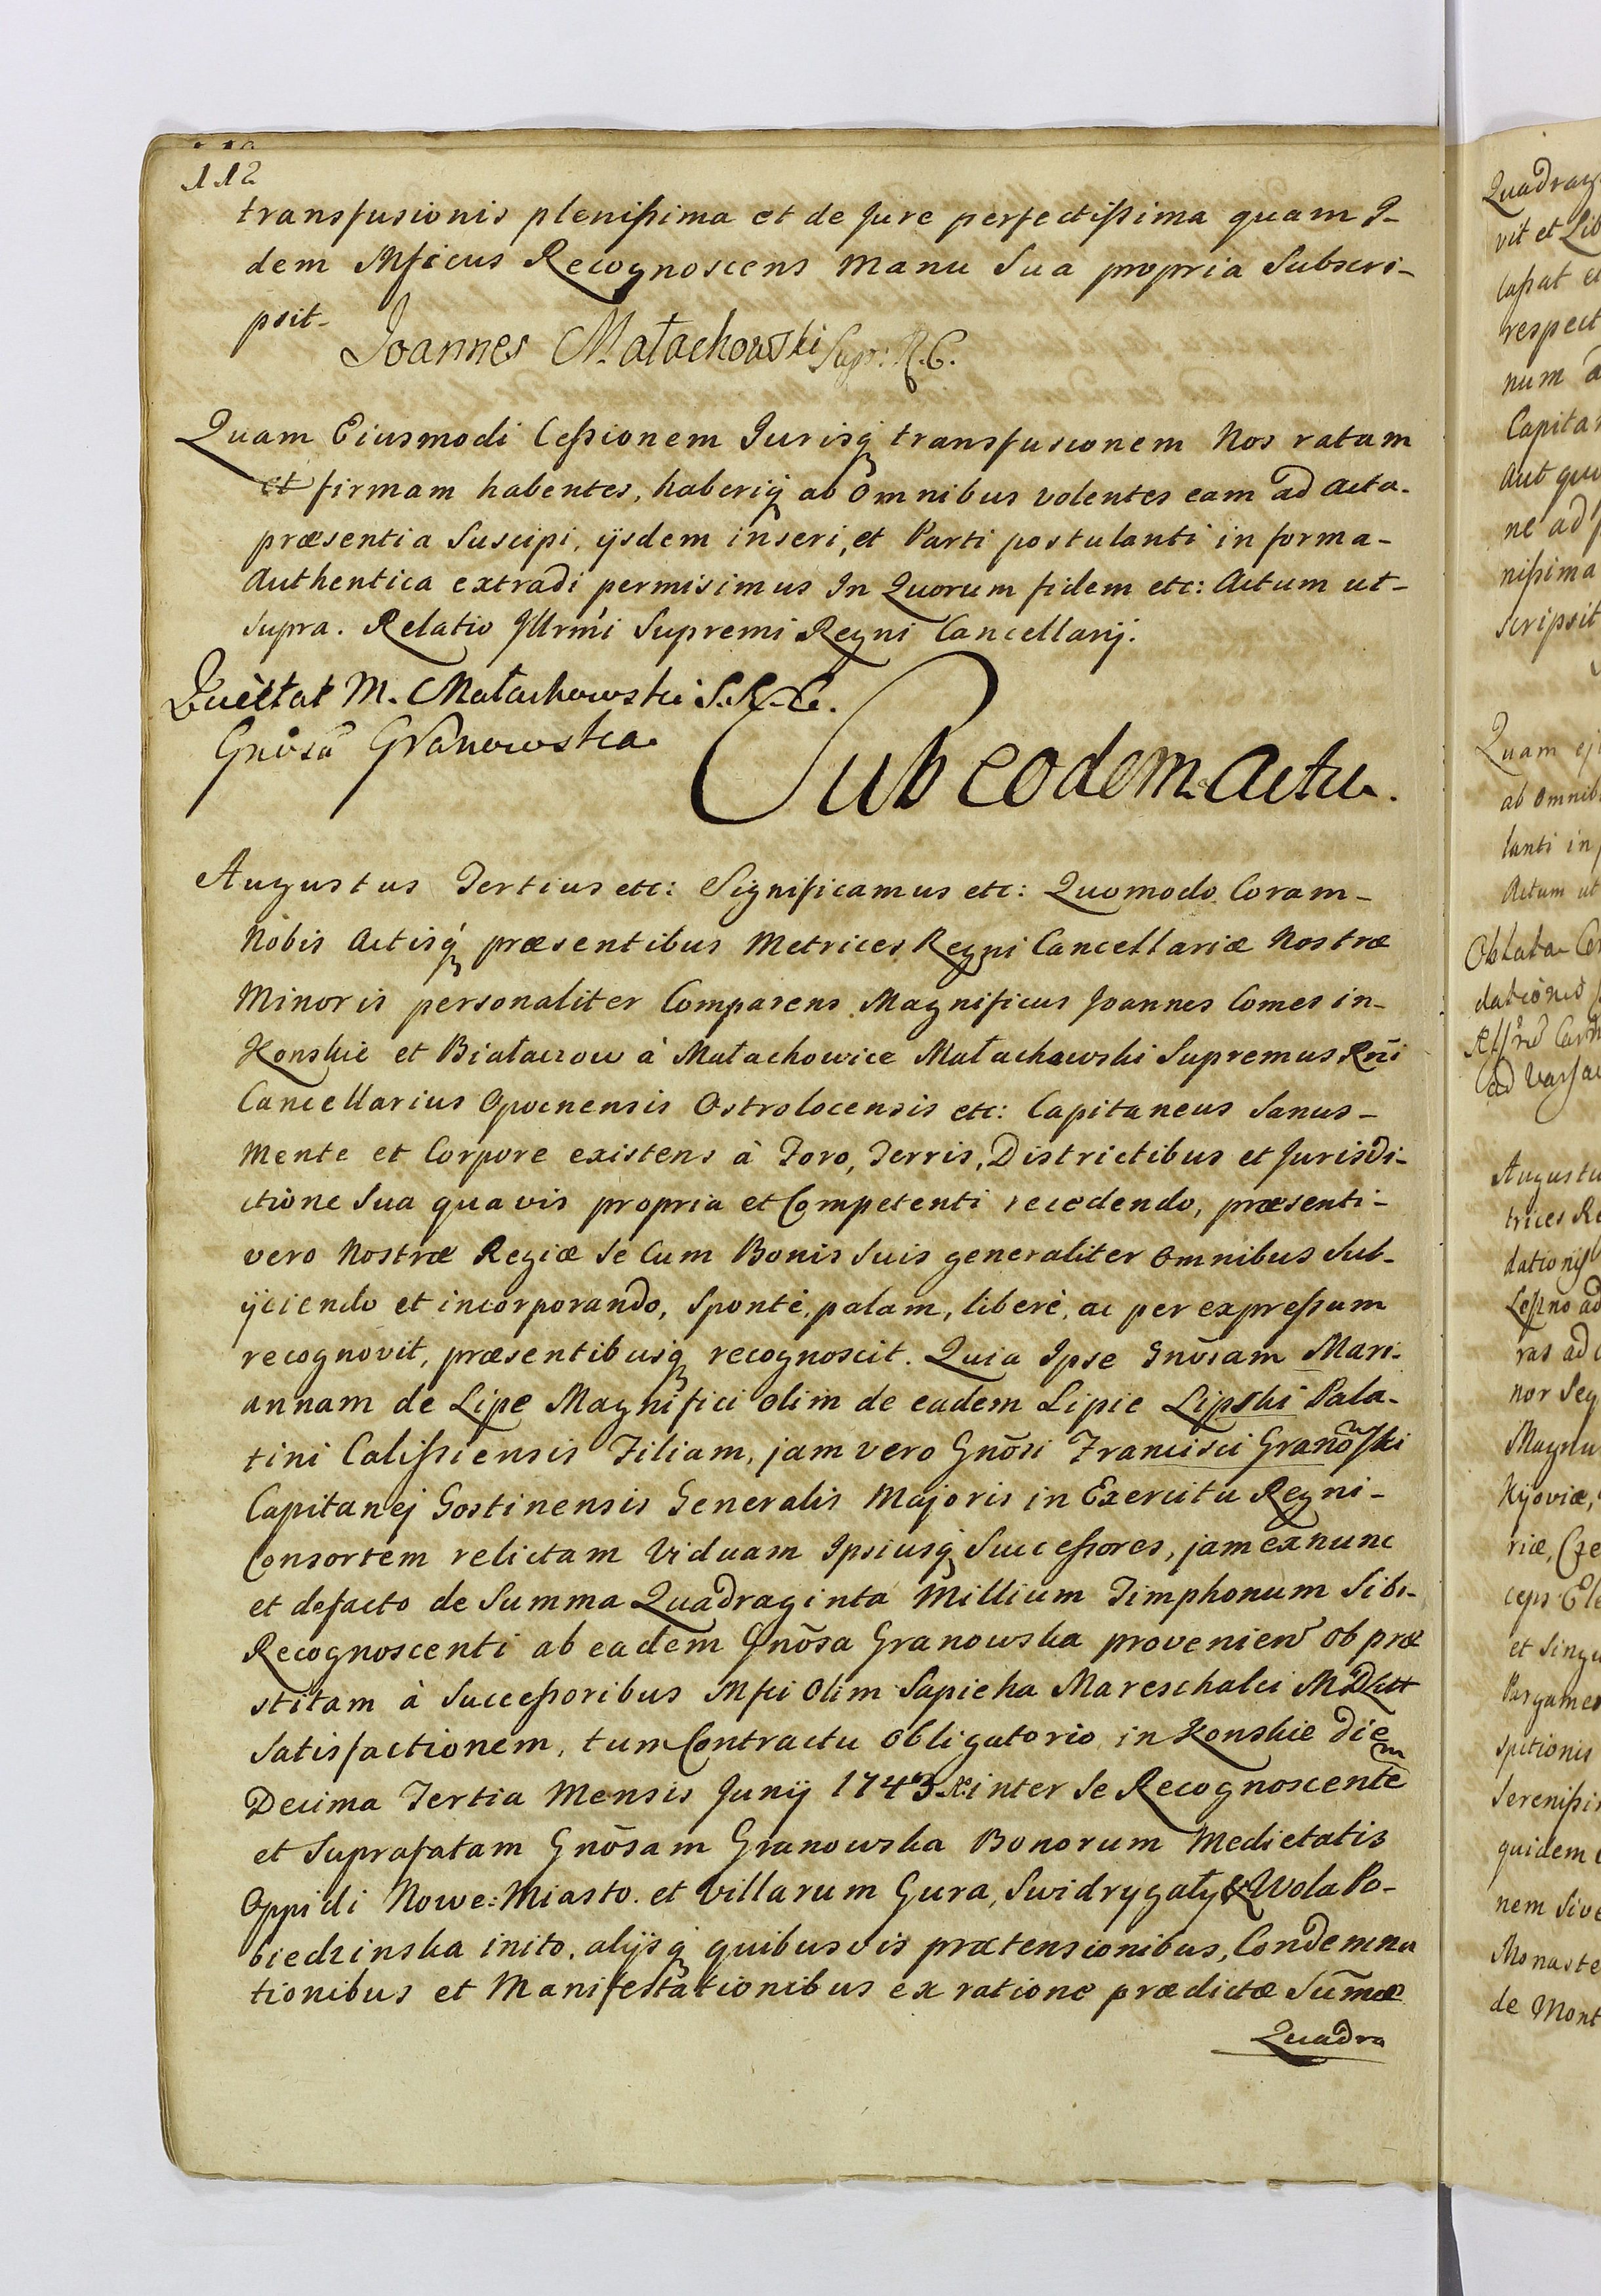 112
transfusionis plenißima et de Jure perfectißima quam I-
dem Mficus Recognoscens Manu Sua propria Subscri-
psit-
Joannes Małachowski Supr: R. C.
Quam Eiusmodi Ceßionem Jurisq transfusionem Nos ratam
et firmam habentes, haberiq ab Omnibus volentes eam ad acta.
præsentia Suscipi, ijsdem inseri, et Parti postulanti in forma-
Authentica extradi permisimus In Quorum fidem etc: Actum ut-
supra. Relatio Jllrmi Supremi Regni Cancellarij.
Quiettat M. Małachowski S. R. C.
Gnosa Granowska
Sub eodem Actu.
Augustus Tertius etc: Significamus etc: Quomodo Coram-
Nobis Actisq præsentibus Metrices Regni Cancellariæ Nostræ
Minoris personaliter Comparens Magnificus Joannes Comes in-
Konskie et Białaczow à Małachowice Małachowski Supremus Rñi
Cancellarius Opocnensis Ostrolocensis etc: Capitaneus Sanus-
Mente et Corpore existens à Foro, Terris, Districtibus et Jurisdi-
ctione Sua quavis propria et Competenti recedendo, præsenti-
vero Nostræ Regiæ Se Cum Bonis Suis generaliter Omnibus Sub-
ijciendo et incorporando, Sponté, palam, liberè, ac per expreßum
recognovit, præsentibusq recognoscit. Quia Ipse Gnõsam Mari-
annam de Lipe Magnifici olim de eadem Lipie Lipski Pala-
tini Calißiensis Filiam, jam vero Gnõsi Francisci Granoski
Capitanej Gostinensis Generalis Majoris in Exercitu Regni-
Consortem relictam Viduam Ipsiusq Succeßores, jam exnunc
et defacto de Summa Quadraginta Millium Timphonum Sibi-
Recognoscenti ab eadem Gnõsa Granowska provenien ob præ
stitam à Succeßoribus Mfci Olim Sapieha Mareschalci MDLitt
Satisfactionem, tum Contractu Obligatorio in Konskie die
Decima Tertia Mensis Junij 1743 inter Se Recognoscentem
et Suprafatam Gnõsam Granowska Bonorum Medietatis
Oppidi Nowe-Miasto. et Villarum Gura, Swidrygały & Wola Po-
biedzinska inito, alijsq quibusvis prætensionibus, Condemna
tionibus et Manifestationibus ex ratione prædictæ Sum̃æ
Quadra
Quadrag
vit et Lib
caßat et
respect
num a
Capita
Aut qu
ne ad
nißima
Scripsit
Quam ej
ab Omnib
lanti in
Actum ut
Oblata
dationis
ad Varsa
Augustu
trices Re
Leßno ad
ras ad
nor Seg
Magnu
Kijoviæ,
riæ, Cze
ceps Ele
et Singu
spitionis
Sereniß
quidem
nem Sive
Monaste
de Mont